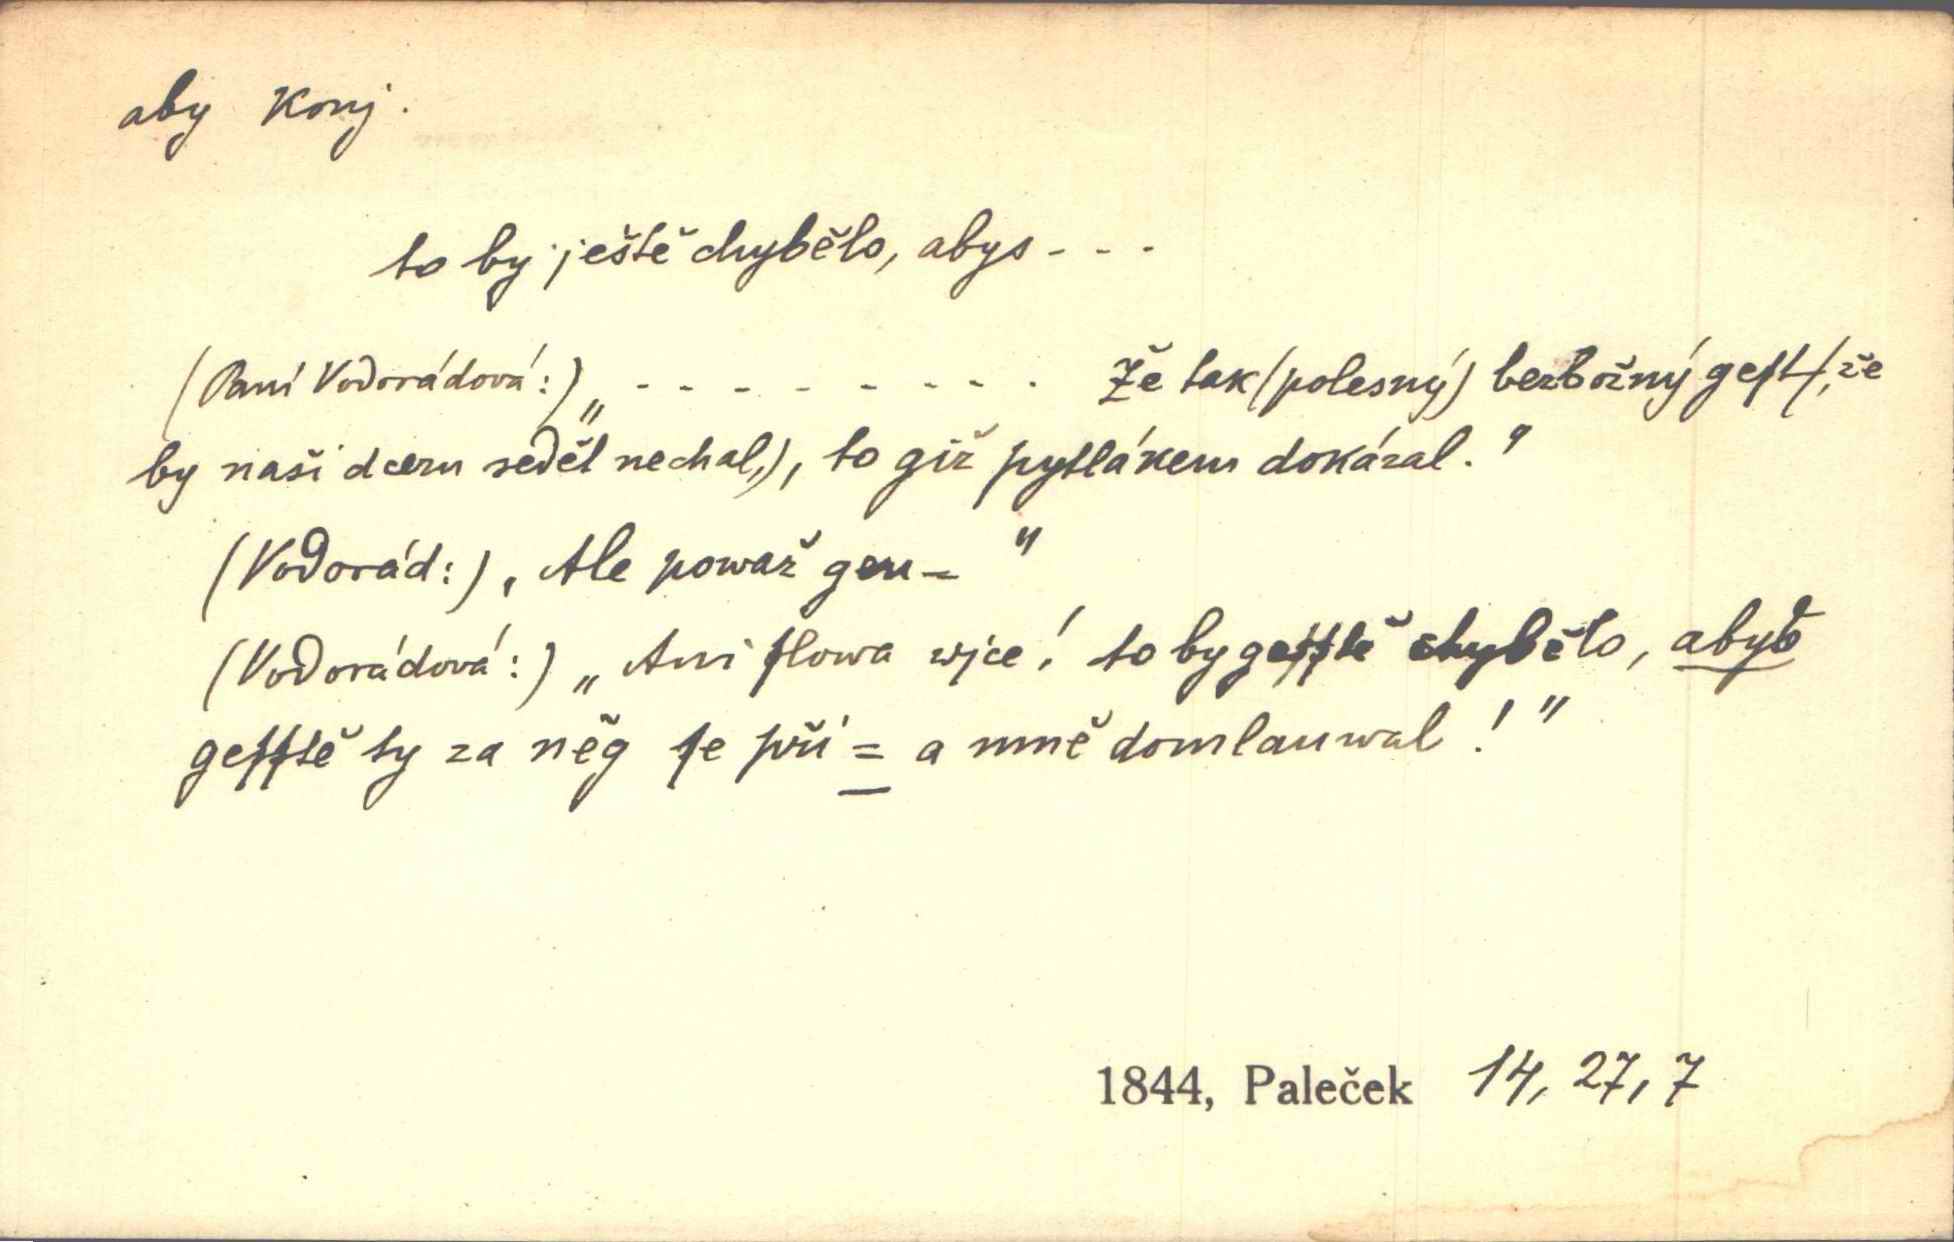 aby konj.
to by ještě chybělo, abys - - -
(Paní Vodorádová:) „ - - - - - - - - - Že tak (polesný) bezbožný geſt (, že
by naši dceru seděl nechal,), to giž pytlákem dokázal."
(Vodorád:) „Ale powaž gen – "
(Vodorádová:) „Ani ſlowa wjce! to by geſſtě chybělo, abys
geſſtě ty za něg ſe při = a mně domlauwal!"
1844, Paleček 14, 27, 7